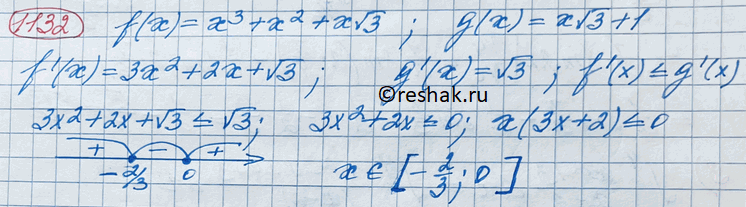 1132 f(x) = x³ + x² + x√3 ; g(x) = x√3 + 1
f'(x) = 3x² + 2x + √3 ; g'(x) = √3 ; f'(x) ≤ g'(x)
©reshak.ru
3x² + 2x + √3 ≤ √3 ; 3x² + 2x ≤ 0 ; x(3x + 2) ≤ 0
+ − +
−2/3 0 x ∈ [−2/3 ; 0]